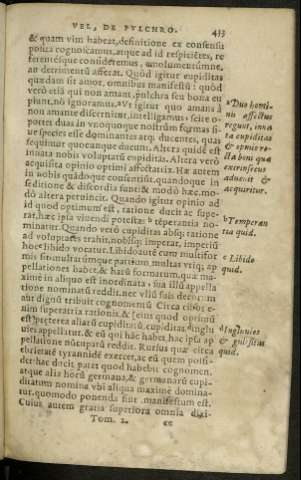 VEL, DE PVLCHRO. 433
& quam vim habeat, definitione ex consensu
posita cognoscamus, atque ad id respicietes, re
ferentésque consideremus, emolumentúmne,
an detrimentũ afferat. Quòd igitur cupiditas
quædam sit amor, omnibus manifestũ: quòd
verò etiã qui non amant, pulchra seu bona cu
piunt, nõ ignoramus. Vt igitur quo amans à
non amante discernitur, intelligamus: scire o-
portet duas in vnoquoque nostrûm formas si-
ue species esse dominantes atq; ducentes, quas
sequimur quocunque ducunt. Altera quidẽ est
innata nobis voluptatũ cupiditas. Altera verò
acquisita opinio optimi affectatrix. Hæ autem
in nobis quãdoque consentiũt, quandoque in
seditione & discordia sunt: & modò hæc, mo-
dò altera peruincit. Quando igitur opinio ad
id quod optimum est, ratione ducit ac supe-
rat, hæc ipsa viuendi potestas tẽperantia no-
minatur. Quando verò cupiditas absq; ratione
ad voluptates trahit, nobisq; imperat, imperiũ
hoc libido vocatur. Libido autẽ cum multifor
mis sit, multarúmque partium, multas vtiq; ap
pellationes habet. & harũ formarum, quæ ma-
ximè in aliquo est inordinata, sua illũ appella
tione nominatũ reddit: nec vllũ suis decorum
aut dignũ tribuit cognomentũ. Circa cibos e-
nim superatrix rationis, & [eius quod optimũ
est] præterea aliarũ cupiditatũ, cupiditas, inglu
uies appellatur. & eũ qui hãc habet, hac ipsa ap
pellatione nũcupatũ reddit. Rursus quæ circa
ebrietatẽ tyrannidẽ exercet, ac eũ quem possi-
det hac ducit, patet quod habebit cognomen.
atque alia horũ germana, & germanarũ cupi-
ditatum nomine vbi aliqua maximè domina-
tur, quomodo ponenda sint, manifestum est.
Cuius autem gratia superiora omnia dixi-
Tom. 2. ee
a Duo homi-
nis affectus
regunt, inna
ta cupiditas
& opinio re-
cta boni quæ
extrinsecus
aduenit &
acquiritur.
b Temperan
tia quid.
c Libido
quid.
d Ingluuies
& gulositas
quid.